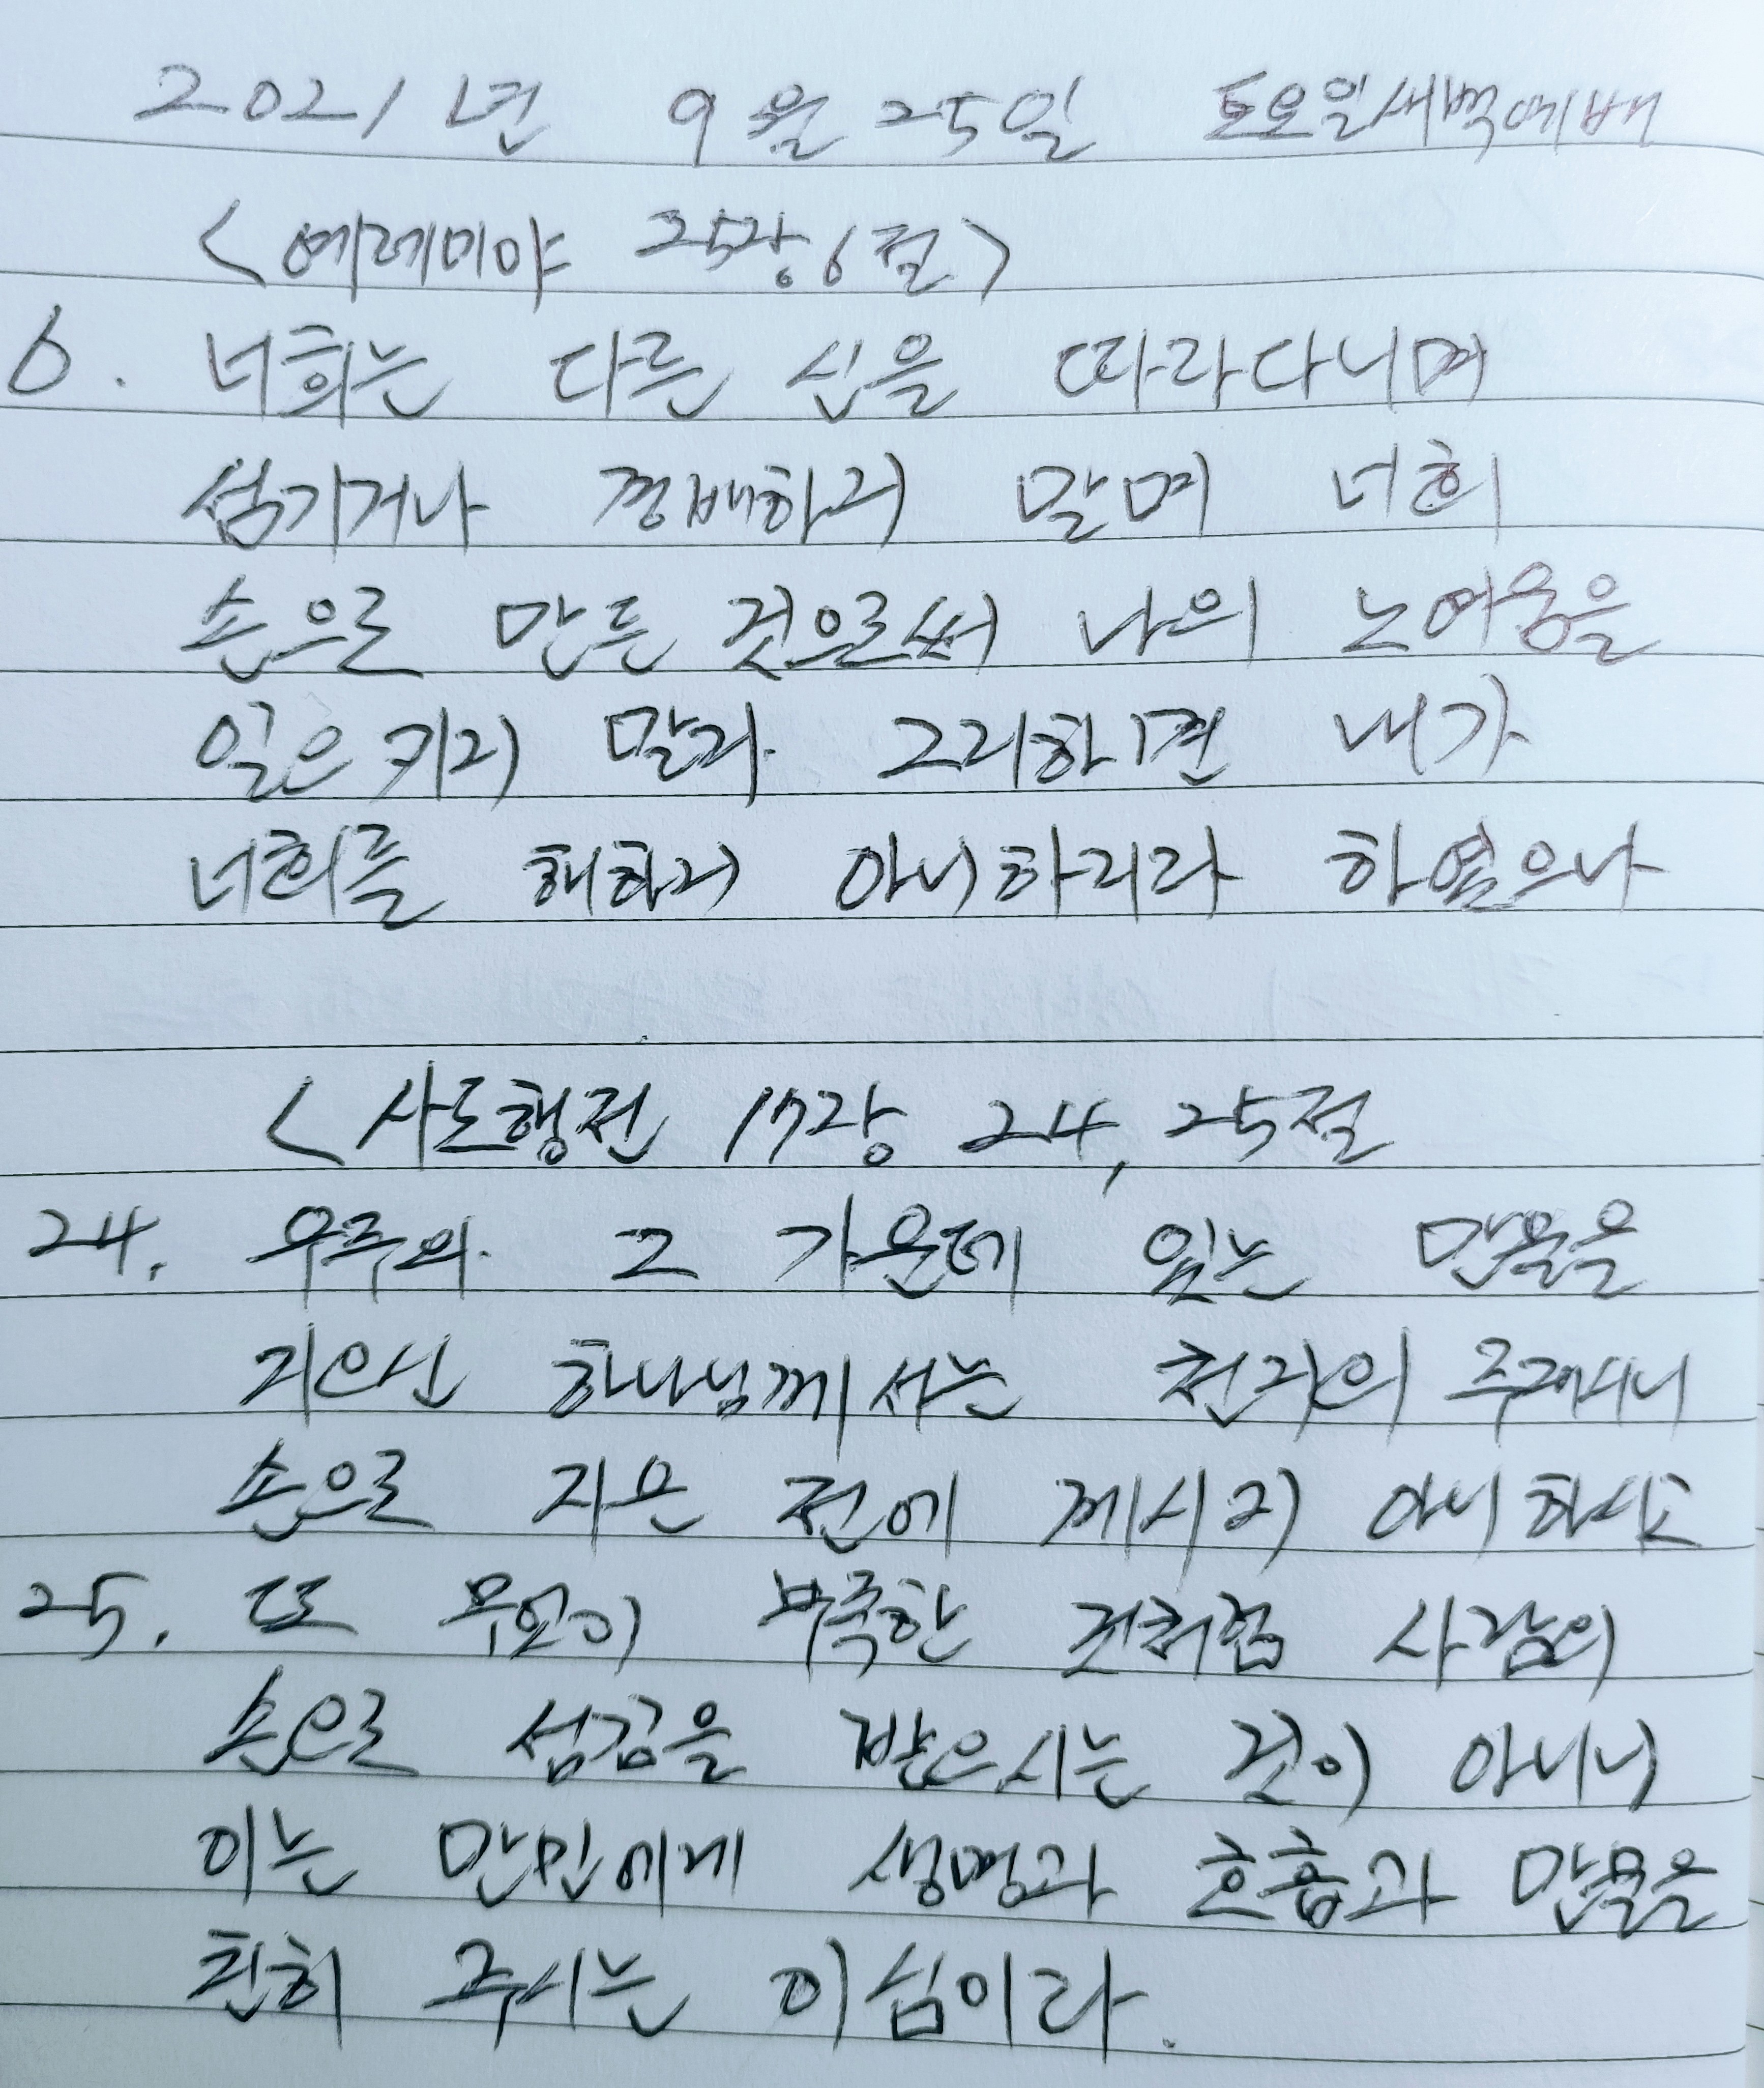 2021년 9월 25일 토요일새벽예배
<예레미야 25장 6절>
6. 너희는 다른 신을 따라다니며
섬기거나 경배하지 말며 너희
손으로 만든 것으로써 나의 노여움을
일으키지 말라 그리하면 내가
너희를 해하지 아니하리라 하였으나
<사도행전 17장 24, 25절
24. 우주와 그 가운데 있는 만물을
지으신 하나님께서는 천지의 주재시니
손으로 지은 전에 계시지 아니하시고
25. 또 무엇이 부족한 것처럼 사람의
손으로 섬김을 받으시는 것이 아니니
이는 만민에게 생명과 호흡과 만물을
친히 주시는 이심이라.